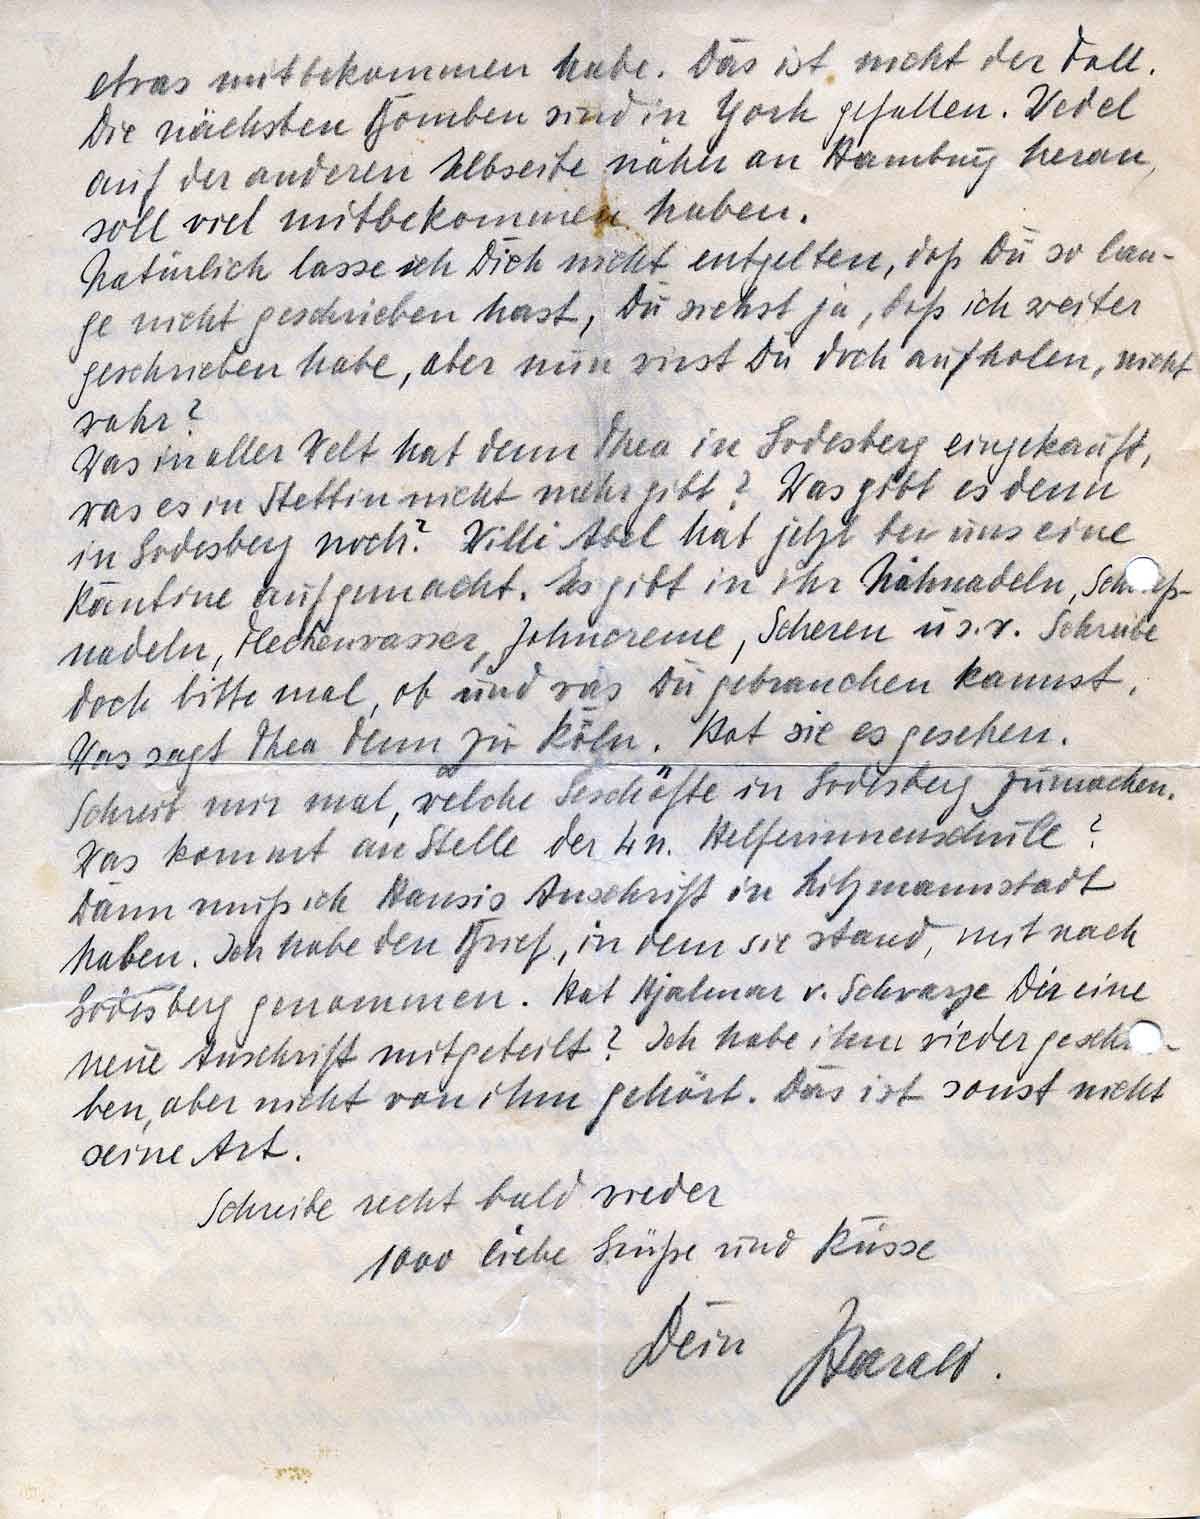 etwas mitbekommen habe. Das ist nicht der Fall.
Die nächsten Bomben sind in York gefallen. Wedel
auf der anderen Elbseite näher an Hamburg heran,
soll viel mitbekommen haben.
Natürlich lasse ich Dich nicht entgelten, daß Du so lan-
ge nicht geschrieben hast, Du siehst ja, daß ich weiter
geschrieben habe, aber nun wirst Du doch aufholen, nicht
wahr?
Was in aller Welt hat denn Thea in Godesberg eingekauft,
was es in Stettin nicht mehr gibt? Was gibt es denn
in Godesberg noch? Willi Abel hat jetzt bei uns eine
Kantine aufgemacht. Es gibt in ihr Nähnadeln,
nadeln, Fleckenwasser, Zahncreme, Scheren u.s.w. Schreibe
doch bitte mal, ob und was Du gebrauchen kannst.
Was sagt Thea denn zu Köln. Hat sie es gesehen.
Schreib mir mal, welche Geschäfte in Godesberg zumachen.
Was kommt an Stelle der Ln. Helferinnenschule?
Dann muß ich Hansis Anschrift in Litzmannstadt
haben. Ich habe den Brief, in dem sie stand, mit nach
Godesberg genommen. Hat Hjalmar v. Schwarze Dir eine
neue Anschrift mitgeteilt? Ich habe ihm wieder geschrie-
ben, aber nicht von ihm gehört. Das ist sonst nicht
seine Art.
Schreibe recht bald wieder
1000 liebe Grüße und Küsse
Dein Harald.